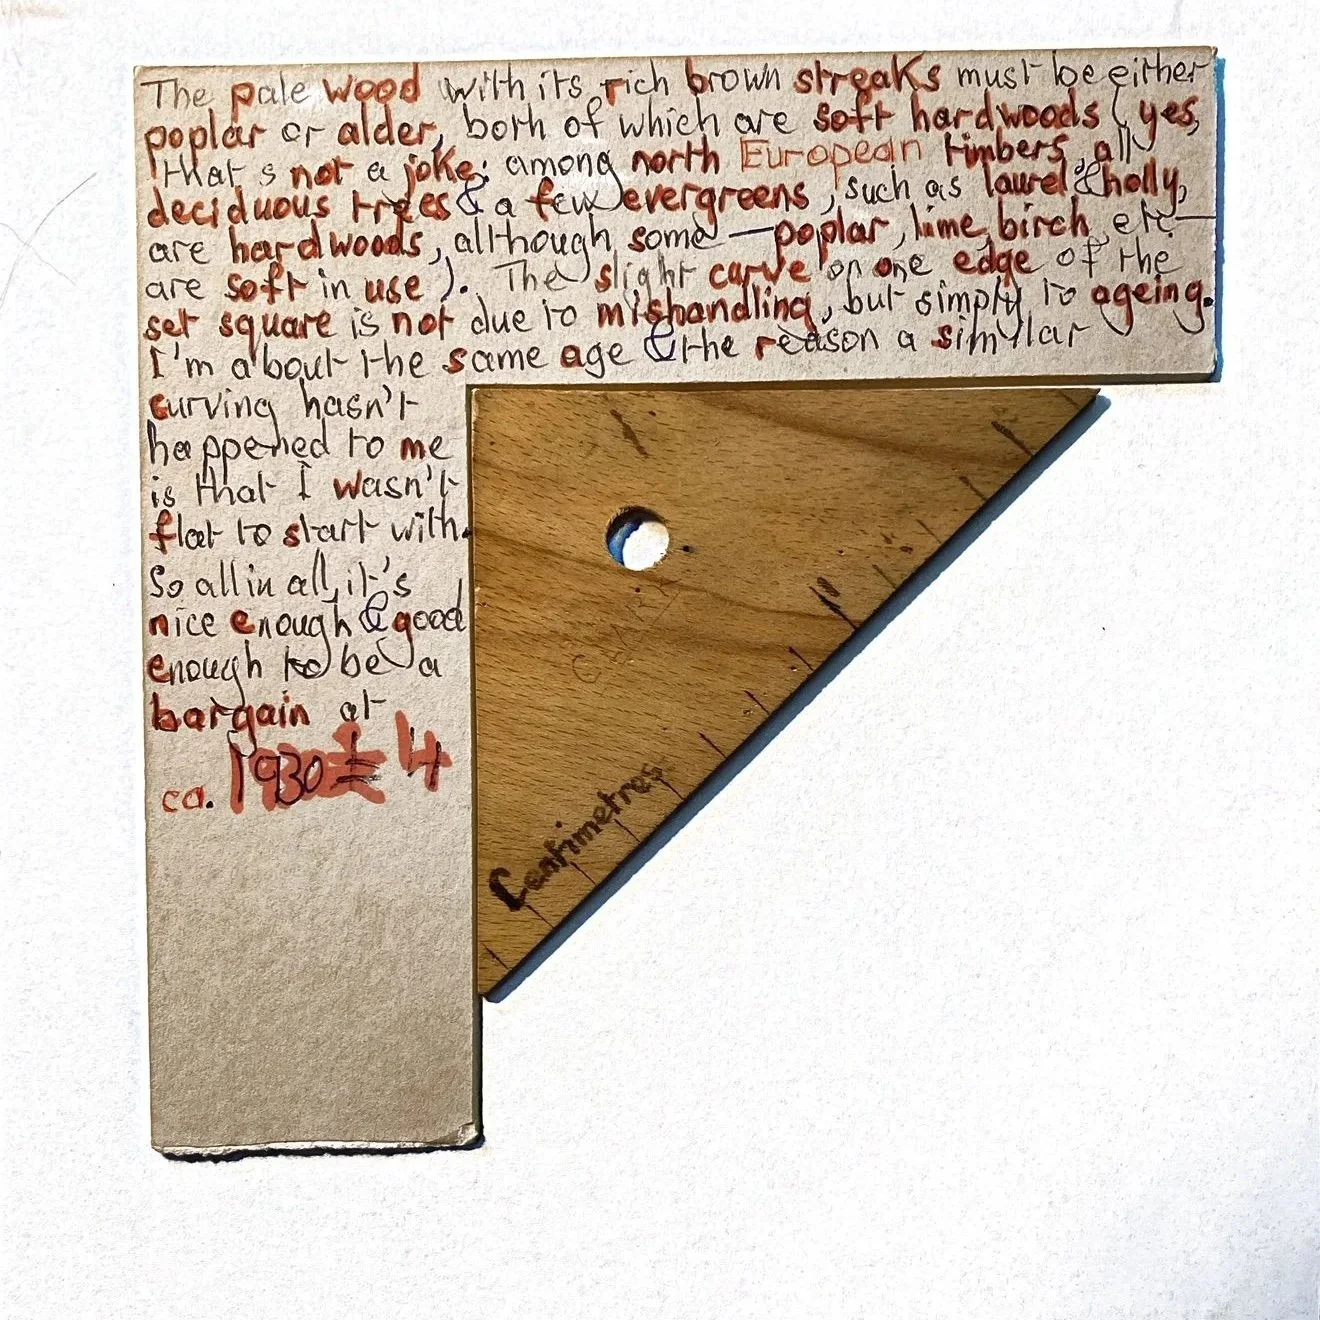 The pale wood with its rich brown streaks must be either
poplar or alder, both of which are soft hardwoods ( yes,
that's not a joke: among north European timbers, all
deciduous trees & a few evergreens, such as laurel & holly,
are hardwoods, although some — poplar, lime, birch, etc —
are soft in use ). The slight curve on one edge of the
set square is not due to mishandling, but simply to ageing.
I'm about the same age & the reason a similar
curving hasn't
happened to me
is that I wasn't
flat to start with.
So all in all, it's
nice enough & good
enough to be a
bargain at
ca. 1930 ± 4
CLARK
Centimetres